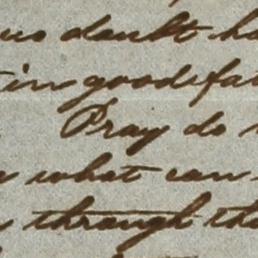 no doubt
in good fa
Pray do
what can
through th